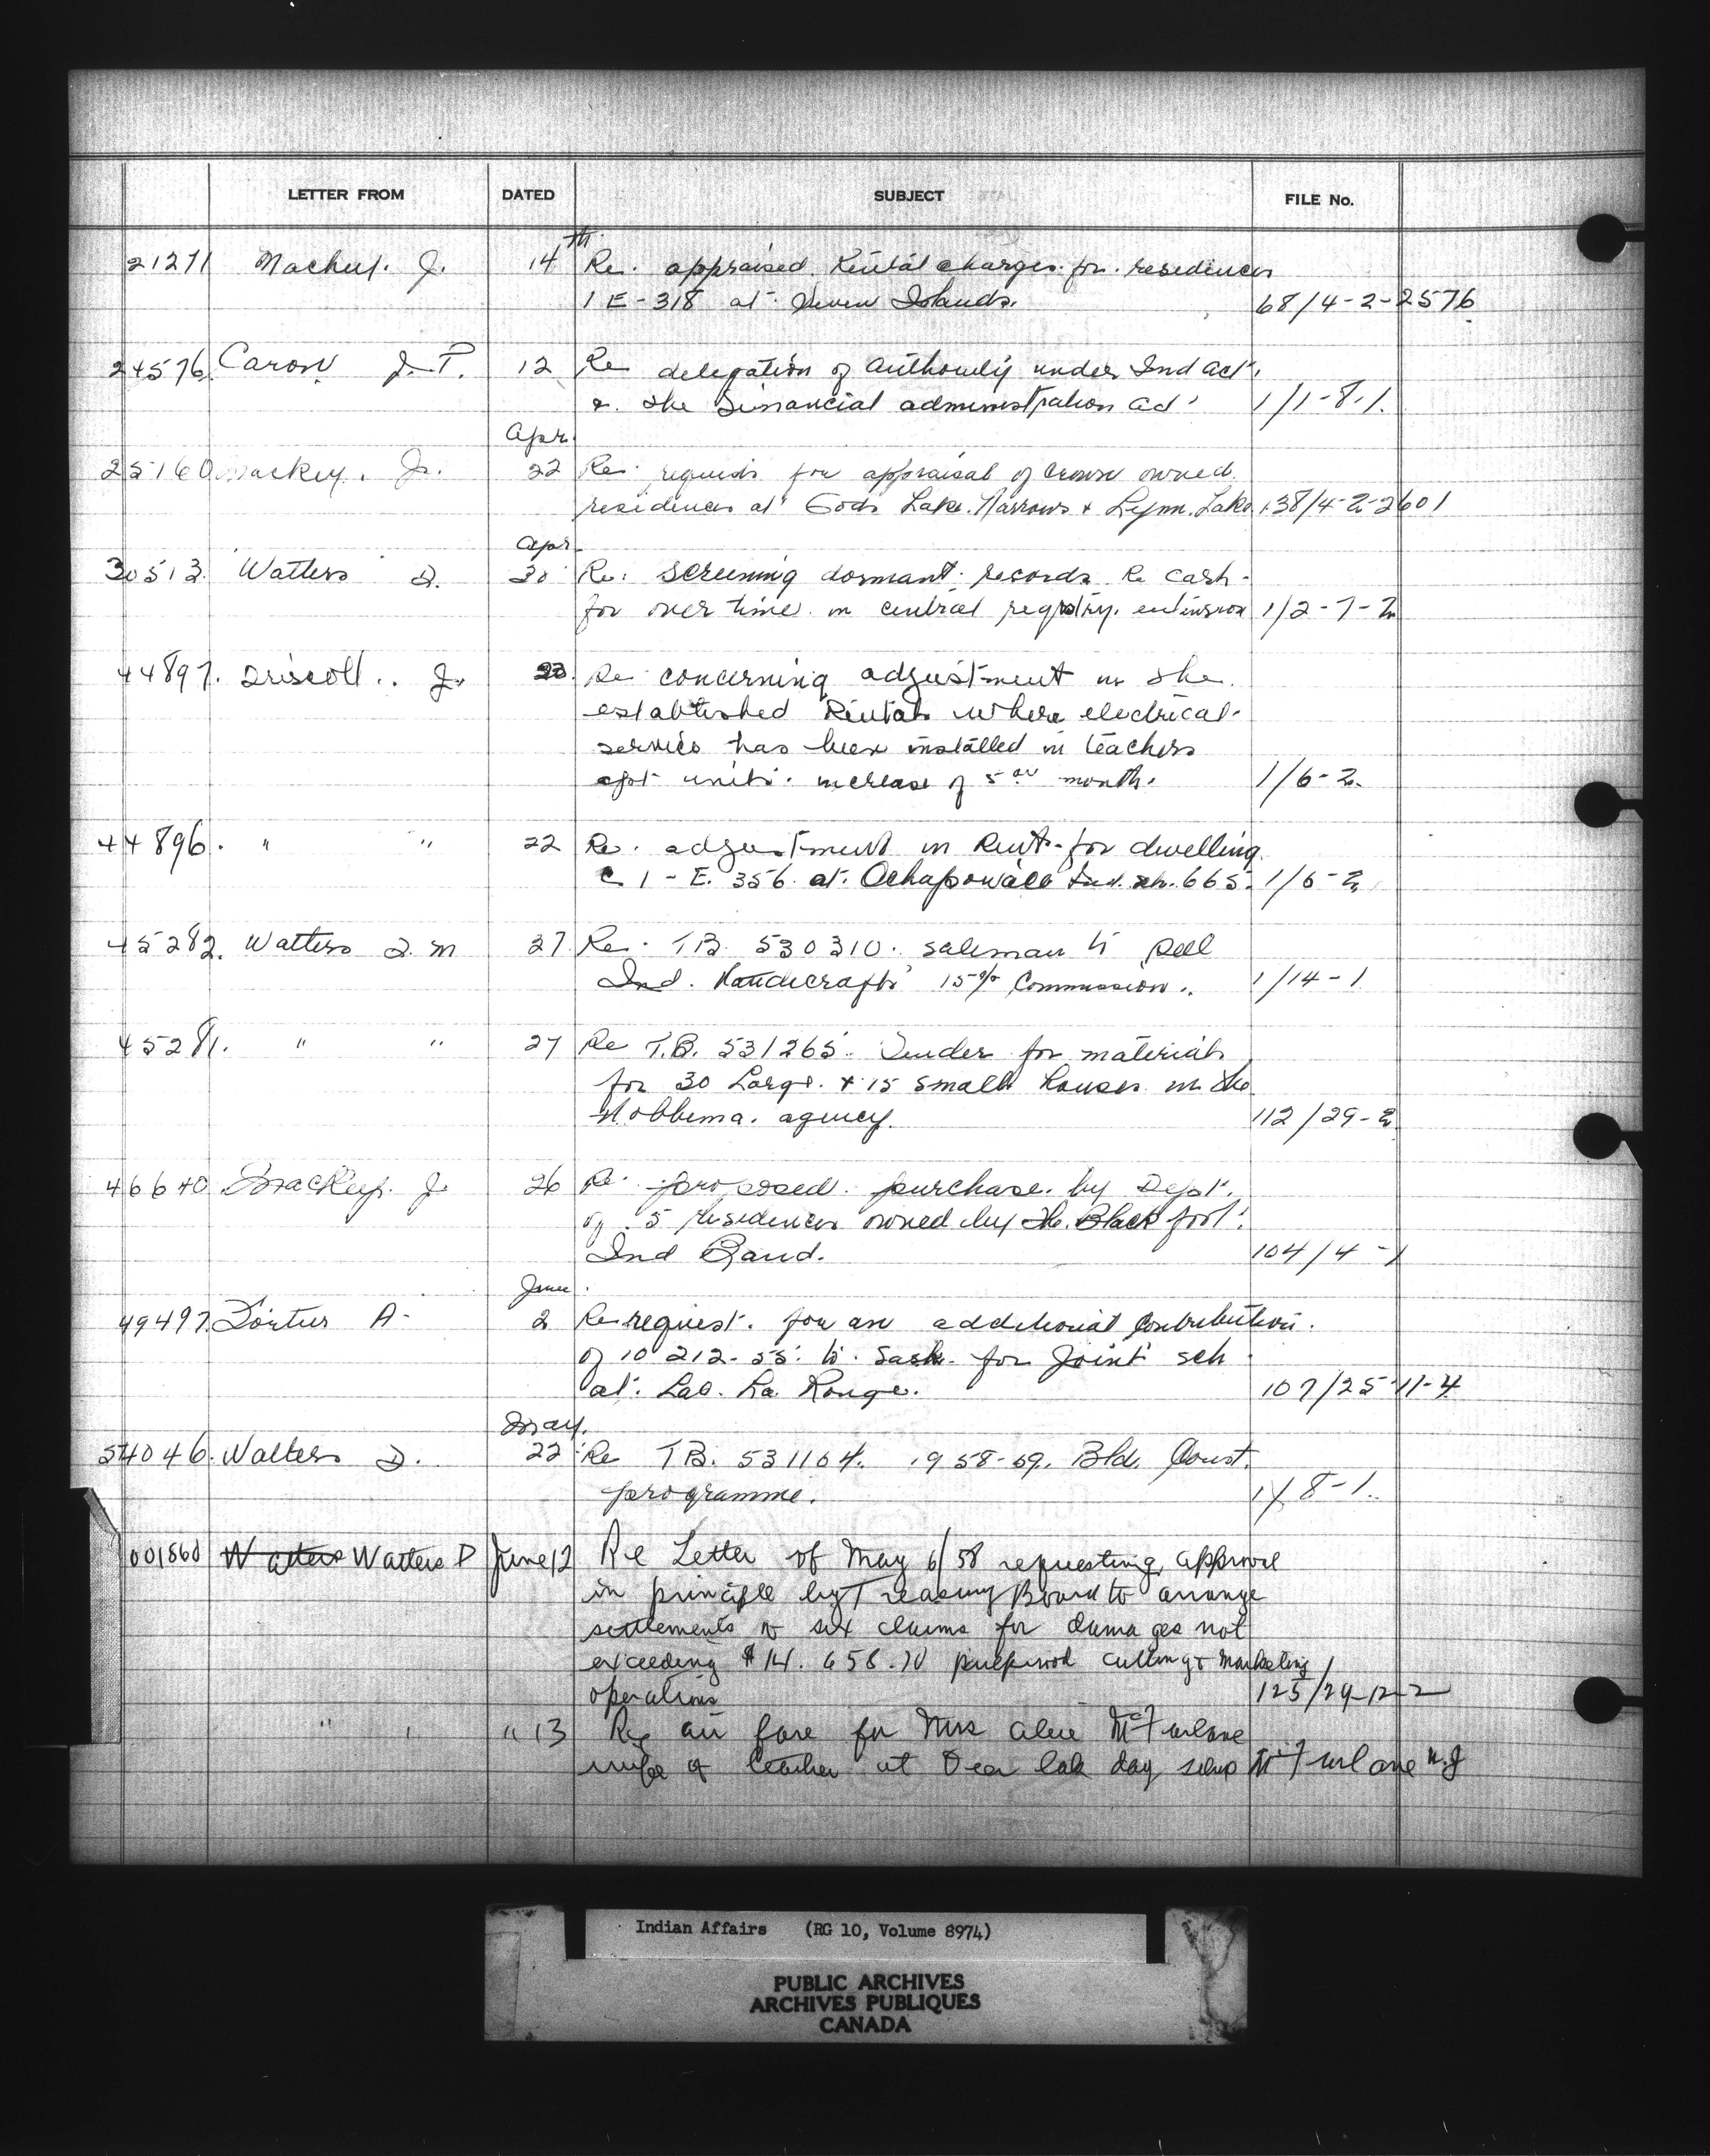 LETTER FROM DATED SUBJECT FILE No.
21271 Mackey. J. 14th Re. appraised Rental charges for residences
1 E-318 at Seven Islands. 68/4-2-2576
24576 Caron J. T. 12 Re delegation of authority under Ind act
& the Financial administration act 1/1-8-1.
Apr.
25160 Mackey. J. 22 Re. requests for appraisal of Crown owned
residences at Gods Lake. Narrows & Lynn. Lake 138/4-2-2601
Apr
30513. Watters D. 30 Re: Screening dormant records Re cash
for over time in central registry. extension 1/2-7-2
44897. Driscoll.. J. 23. Re concerning adjustment in the
established Rentals where electrical
service has been installed in teachers
apt units. increase of 5 00 month. 1/6-2.
44896. " " 22 Re. adjustment in Rent for dwelling
C 1-E. 356 at. Ochapowace Ind. sch. 665. 1/6-2
45282. Watters D. M 27. Re. TB. 530310. saleman to sell
Ind. Handicrafts 15% Commission. 1/14-1
45281. " " 27 Re T.B. 531265. Tender for materials
for 30 Large. & 15 small houses in the
Hobbema. agency. 112/29-2
46640 Mackey. J 26 Re. proposed. purchase. by Dept.
of 5 residences owned by the. Blackfoot
Ind Band. 104/4-1
June
49497. A- 2 Re request. for an additional contribution.
of 10 212-55. to. Sask. for Joint sch
at. Lac. La Ronge. 107/25-11-4
May.
54046. Watters D. 22 Re TB. 531164. 1958-59. Bld. Const.
programme. 1/8-1.
001860 Watters Watters D June 12 Re Letter of May 6/58 requesting approval
in principle by Treasury Board to arrange
settlements of six claims for damages not
exceeding $14. 658.70 pulpwood cutting & marketing
operations 125/29-12-2
" " " 13 Re air fare for Mrs McFarlane
wife of teacher at Deer lake day school McFarlane
Indian Affairs (RG 10, Volume 8974)
PUBLIC ARCHIVES
ARCHIVES PUBLIQUES
CANADA